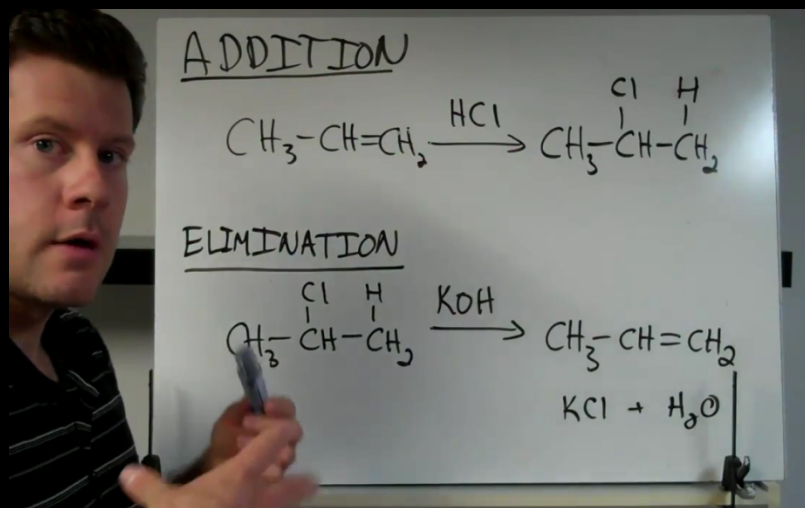 ADDITION
Cl H
CH₃-CH=CH₂ HCl → CH₃-CH-CH₂
ELIMINATION
Cl H
CH₃-CH-CH₂ KOH → CH₃-CH=CH₂
KCl + H₂O